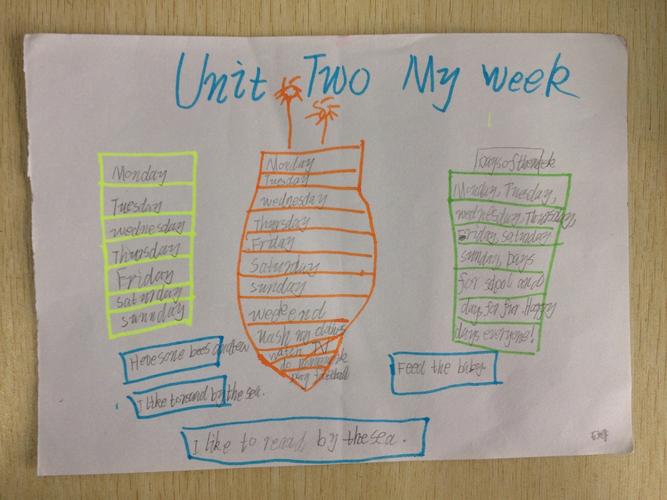 Unit Two My week
Monday
Tuesday
wednesday
Thursday
Friday
saturday
sunnday
Monday
Tuesday
wednesday
Thursday
Friday
Saturday
sunday
weekend
wash my
watch TV
do
play football
Monday, Tuesday,
wednesday, Thursday,
Friday, saturday
sunday, Days
for shool and
days for fun Happy
days everyone!
Here some bees
I like to by the sea.
Feed the baby.
I like to read by the sea.